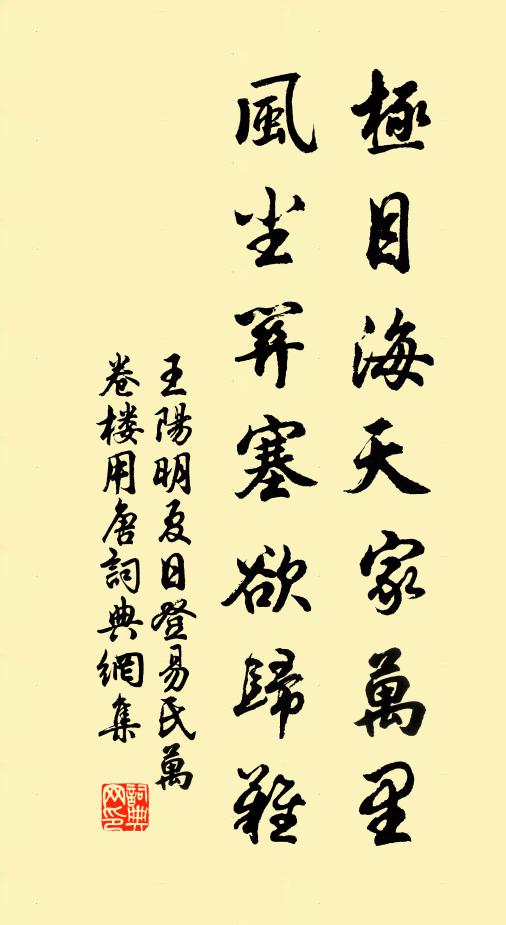 極目海天家萬里
風尘関塞欲歸難
王陽明夏日登易氏萬
卷楼用唐詞典網集
詞典网印